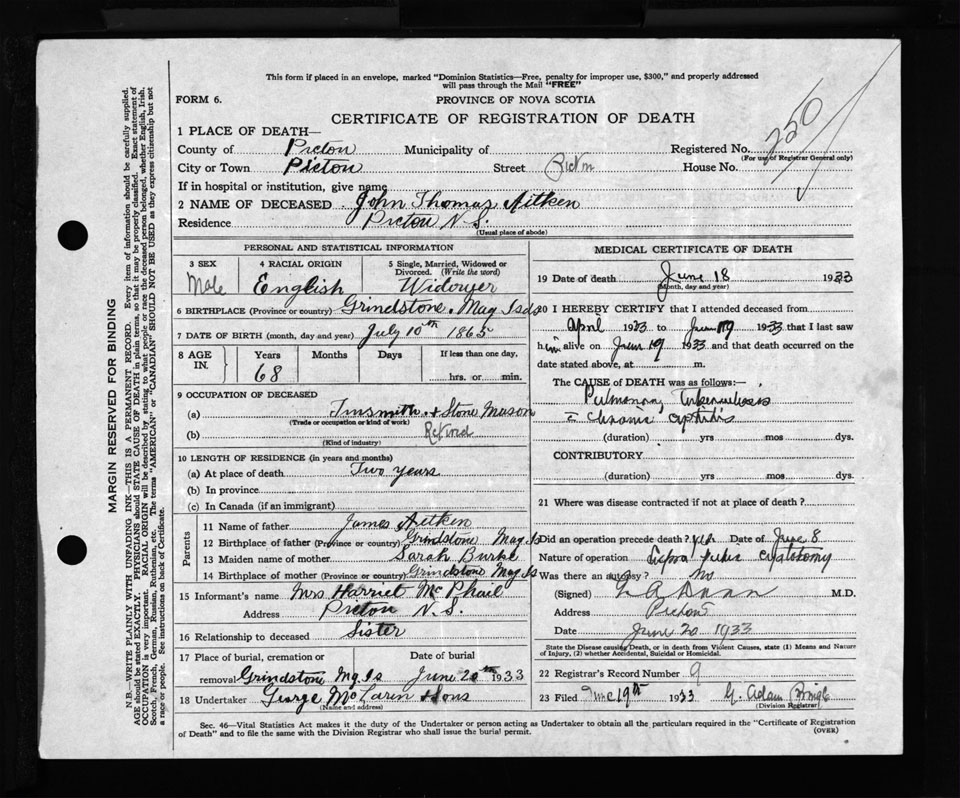 This form if placed in an envelope, marked "Dominion Statistics—Free, penalty for improper use, $300," and properly addressed
will pass through the Mail "FREE"
FORM 6.
PROVINCE OF NOVA SCOTIA
CERTIFICATE OF REGISTRATION OF DEATH
250
1 PLACE OF DEATH—
County of Pictou Municipality of Registered No.
(For use of Registrar General only)
City or Town Pictou Street Pictou House No.
If in hospital or institution, give name
2 NAME OF DECEASED John Thomas Aitken
Residence Pictou N.S.
(Usual place of abode)
PERSONAL AND STATISTICAL INFORMATION
3 SEX 4 RACIAL ORIGIN 5 Single, Married, Widowed or
Divorced. (Write the word)
Male English Widower
6 BIRTHPLACE (Province or country) Grindstone. Mag Isds
7 DATE OF BIRTH (month, day and year) July 10th 1865
8 AGE IN. Years Months Days If less than one day,
68 hrs. or min.
9 OCCUPATION OF DECEASED
(a) Tinsmith + Stone Mason
(Trade or occupation or kind of work)
(b) Retired
(Kind of industry)
10 LENGTH OF RESIDENCE (in years and months)
(a) At place of death Two years
(b) In province
(c) In Canada (if an immigrant)
Parents
11 Name of father James Aitken
12 Birthplace of father (Province or country) Grindstone Mag Is
13 Maiden name of mother Sarah Burke
14 Birthplace of mother (Province or country) Grindstone Mag Is
15 Informant's name Mrs. Harriet McPhail
Address Pictou N.S.
16 Relationship to deceased Sister
17 Place of burial, cremation or Date of burial
removal Grindstone Mg. Is June 20th 1933
18 Undertaker George McLaren + Sons
(Name and address)
MEDICAL CERTIFICATE OF DEATH
19 Date of death June 18 1933
(Month, day and year)
20 I HEREBY CERTIFY that I attended deceased from
April 1933 to June 19 1933 that I last saw
him alive on June 19 1933 and that death occurred on the
date stated above, at m.
The CAUSE OF DEATH was as follows:
Pulmonary Tuberculosis
Chronic cystitis
(duration) yrs mos dys.
CONTRIBUTORY
(duration) yrs mos dys.
21 Where was disease contracted if not at place of death?
Did an operation precede death? yes Date of June 8
Nature of operation Supra pubic cystotomy
Was there an autopsy? No
(Signed) Dunn M.D.
Address Pictou
Date June 20 1933
State the Disease causing Death, or in death from Violent Causes, state (1) Means and Nature
of Injury, (2) whether Accidental, Suicidal or Homicidal.
22 Registrar's Record Number 9
23 Filed June 19th 1933 G. Adam
(Division Registrar)
Sec. 46—Vital Statistics Act makes it the duty of the Undertaker or person acting as Undertaker to obtain all the particulars required in the "Certificate of Registration
of Death" and to file the same with the Division Registrar who shall issue the burial permit.
(OVER)
MARGIN RESERVED FOR BINDING
N.B.—WRITE PLAINLY WITH UNFADING INK—THIS IS A PERMANENT RECORD. Every item of information should be carefully supplied.
AGE should be stated EXACTLY. PHYSICIANS should STATE CAUSE OF DEATH in plain terms, so that it may be properly classified. Exact statement of
OCCUPATION is very important. RACIAL ORIGIN will be described by stating to what people or race the deceased person belonged, whether English, Irish,
Scotch, French, German, Russian, Ruthenian, etc. The terms "AMERICAN" or "CANADIAN" SHOULD NOT BE USED as they express citizenship but not
a race or people. See instructions on back of Certificate.